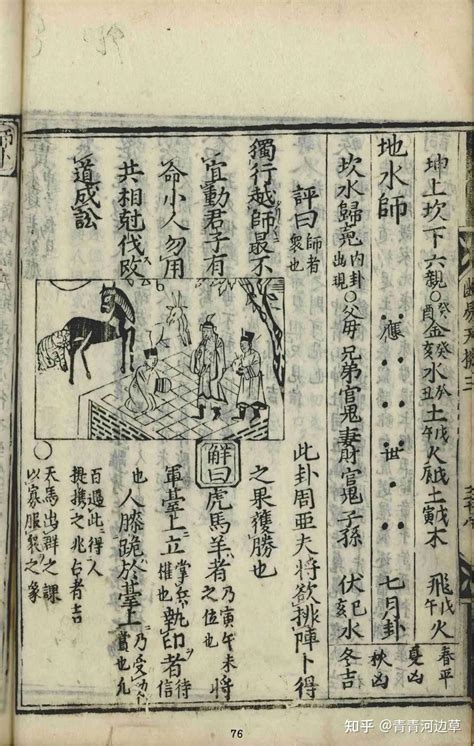 坤上坎下六親
癸酉金
癸亥水
癸丑土
戊午火
戊辰土
戊寅木
飛戊午火
春平
夏凶
秋凶
冬吉
地水師
應
世
七月卦
坎水歸寃內卦出現
父母
兄弟
官鬼
妻財
官鬼
子孫
伏巳亥水
評曰師者衆也
此卦周亞夫將欲排陣卜得
獨行越師最不
之果獲勝也
宜動君子有
命小人勿用
共相尅伐改
道成訟
解曰虎馬羊者乃寅午未之位也將
軍臺上立掌兵權也執印者信
也人膝跪於臺上
天馬出群之課
以寡服衆之象
76
知乎 @青青河边草